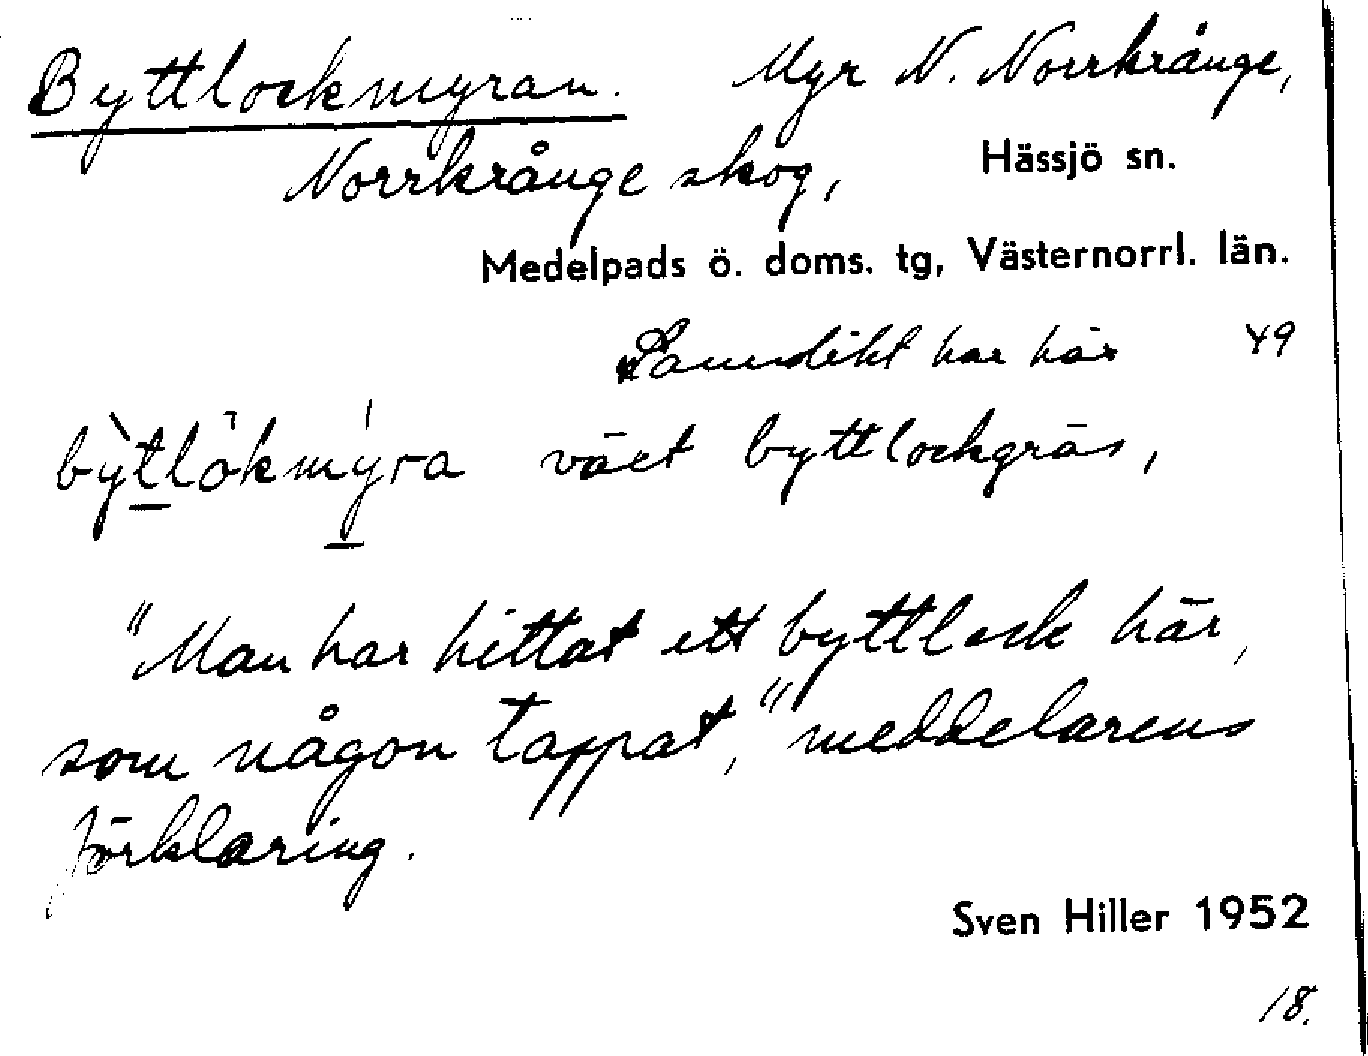 Byttlockmyran. Myr N. Norrkrånge,
Norrkrånge skog, Hässjö sn.
Medelpads ö. doms. tg, Västernorrl. län.
Sannolikt har här 49
bỳtlökmýra växt byttlockgräs,
"Man har hittat ett byttlock här,
som någon tappat," meddelarens
förklaring.
Sven Hiller 1952
18.